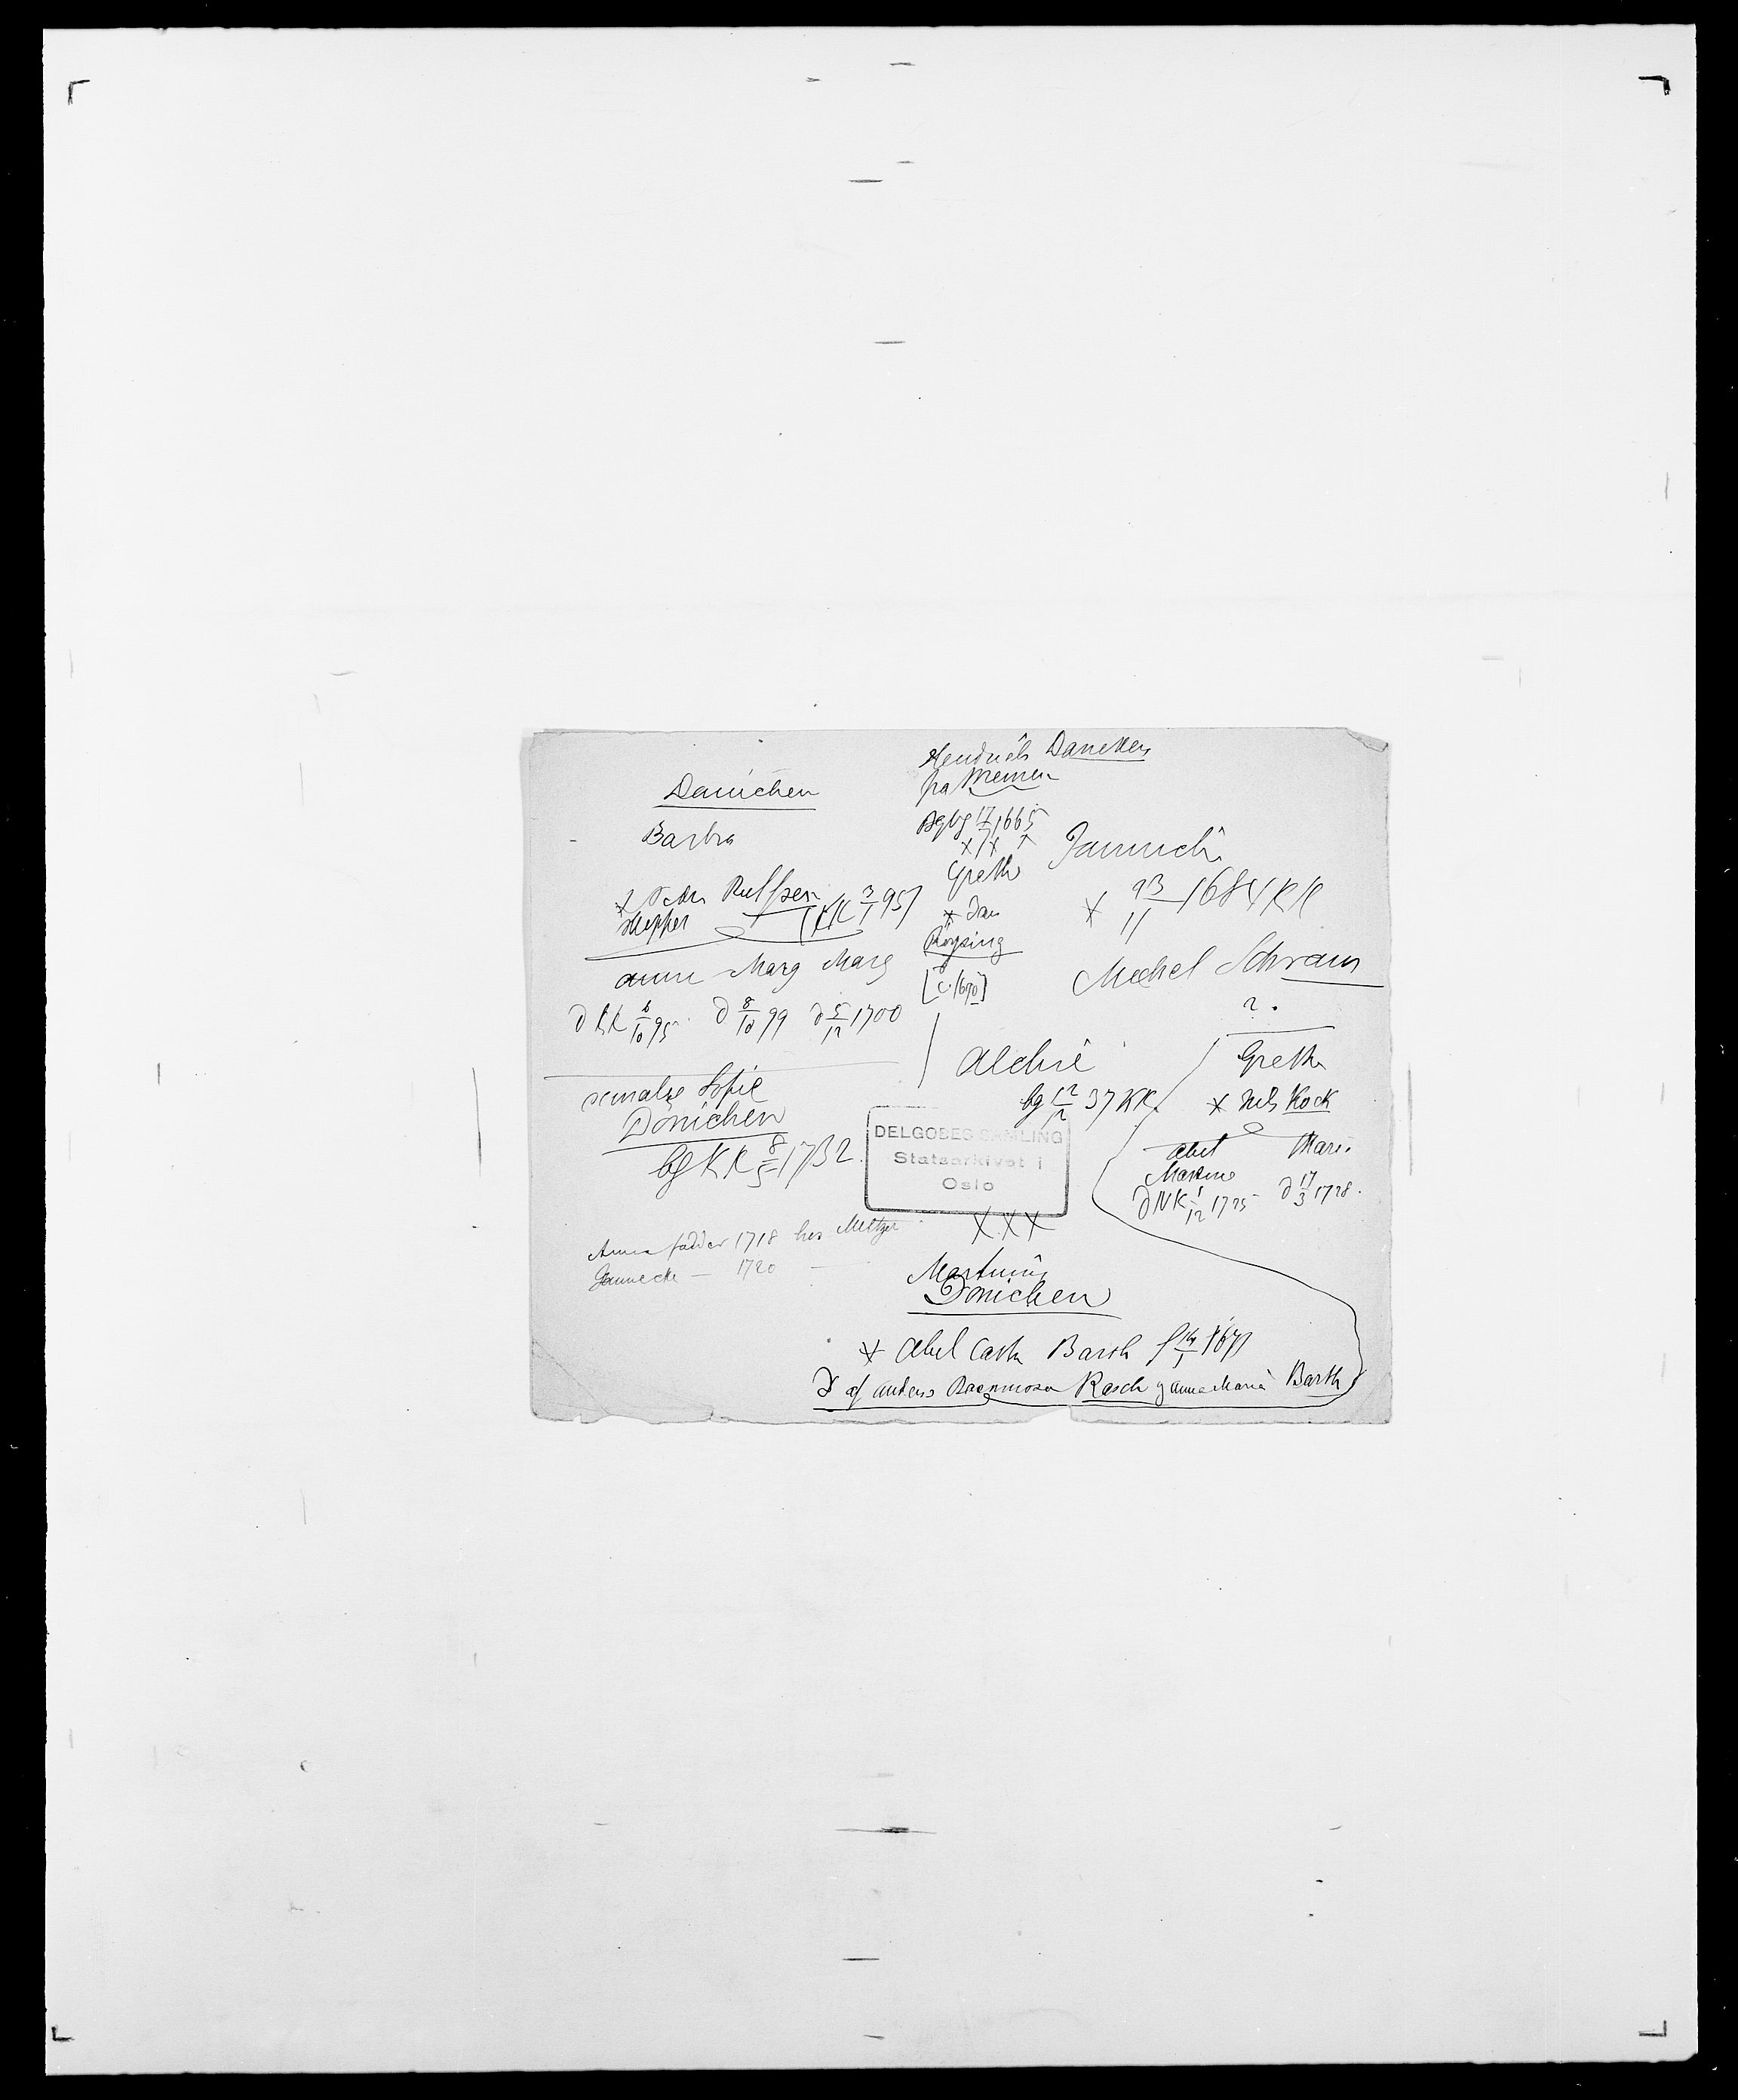 Danichen
Barbra
Skipper
(KK 3/1 95)
Anne Marg Marg
D KK 6/10 95 D 8/10 99 D 5/12 1700
Sofie
Dönichen
bg KK 8/5 1732
Anna fadder 1718 hos Meltzer
Jannecke — 1720 —
Hendrich Danekers
fra Bremen
Bgbg 17/7 1665
x x x
Grethe
x Dan
Röysing
[c. 1690]
Jannich
x 23/11 1684 KK
Michel Schram
?.
Alchie
bg 12/12 37 KK.
Grethe
x Nils Kock
Abel Mari.
Martine
D NK 1/12 1725 D 17/3 1728.
DELGOBES SAMLING
Statsarkivet i
Oslo
X X X
Martinus
Dönichen
x Abel Cath Barth f 14/1
D af Anders Rasch g Anne Maria Barth